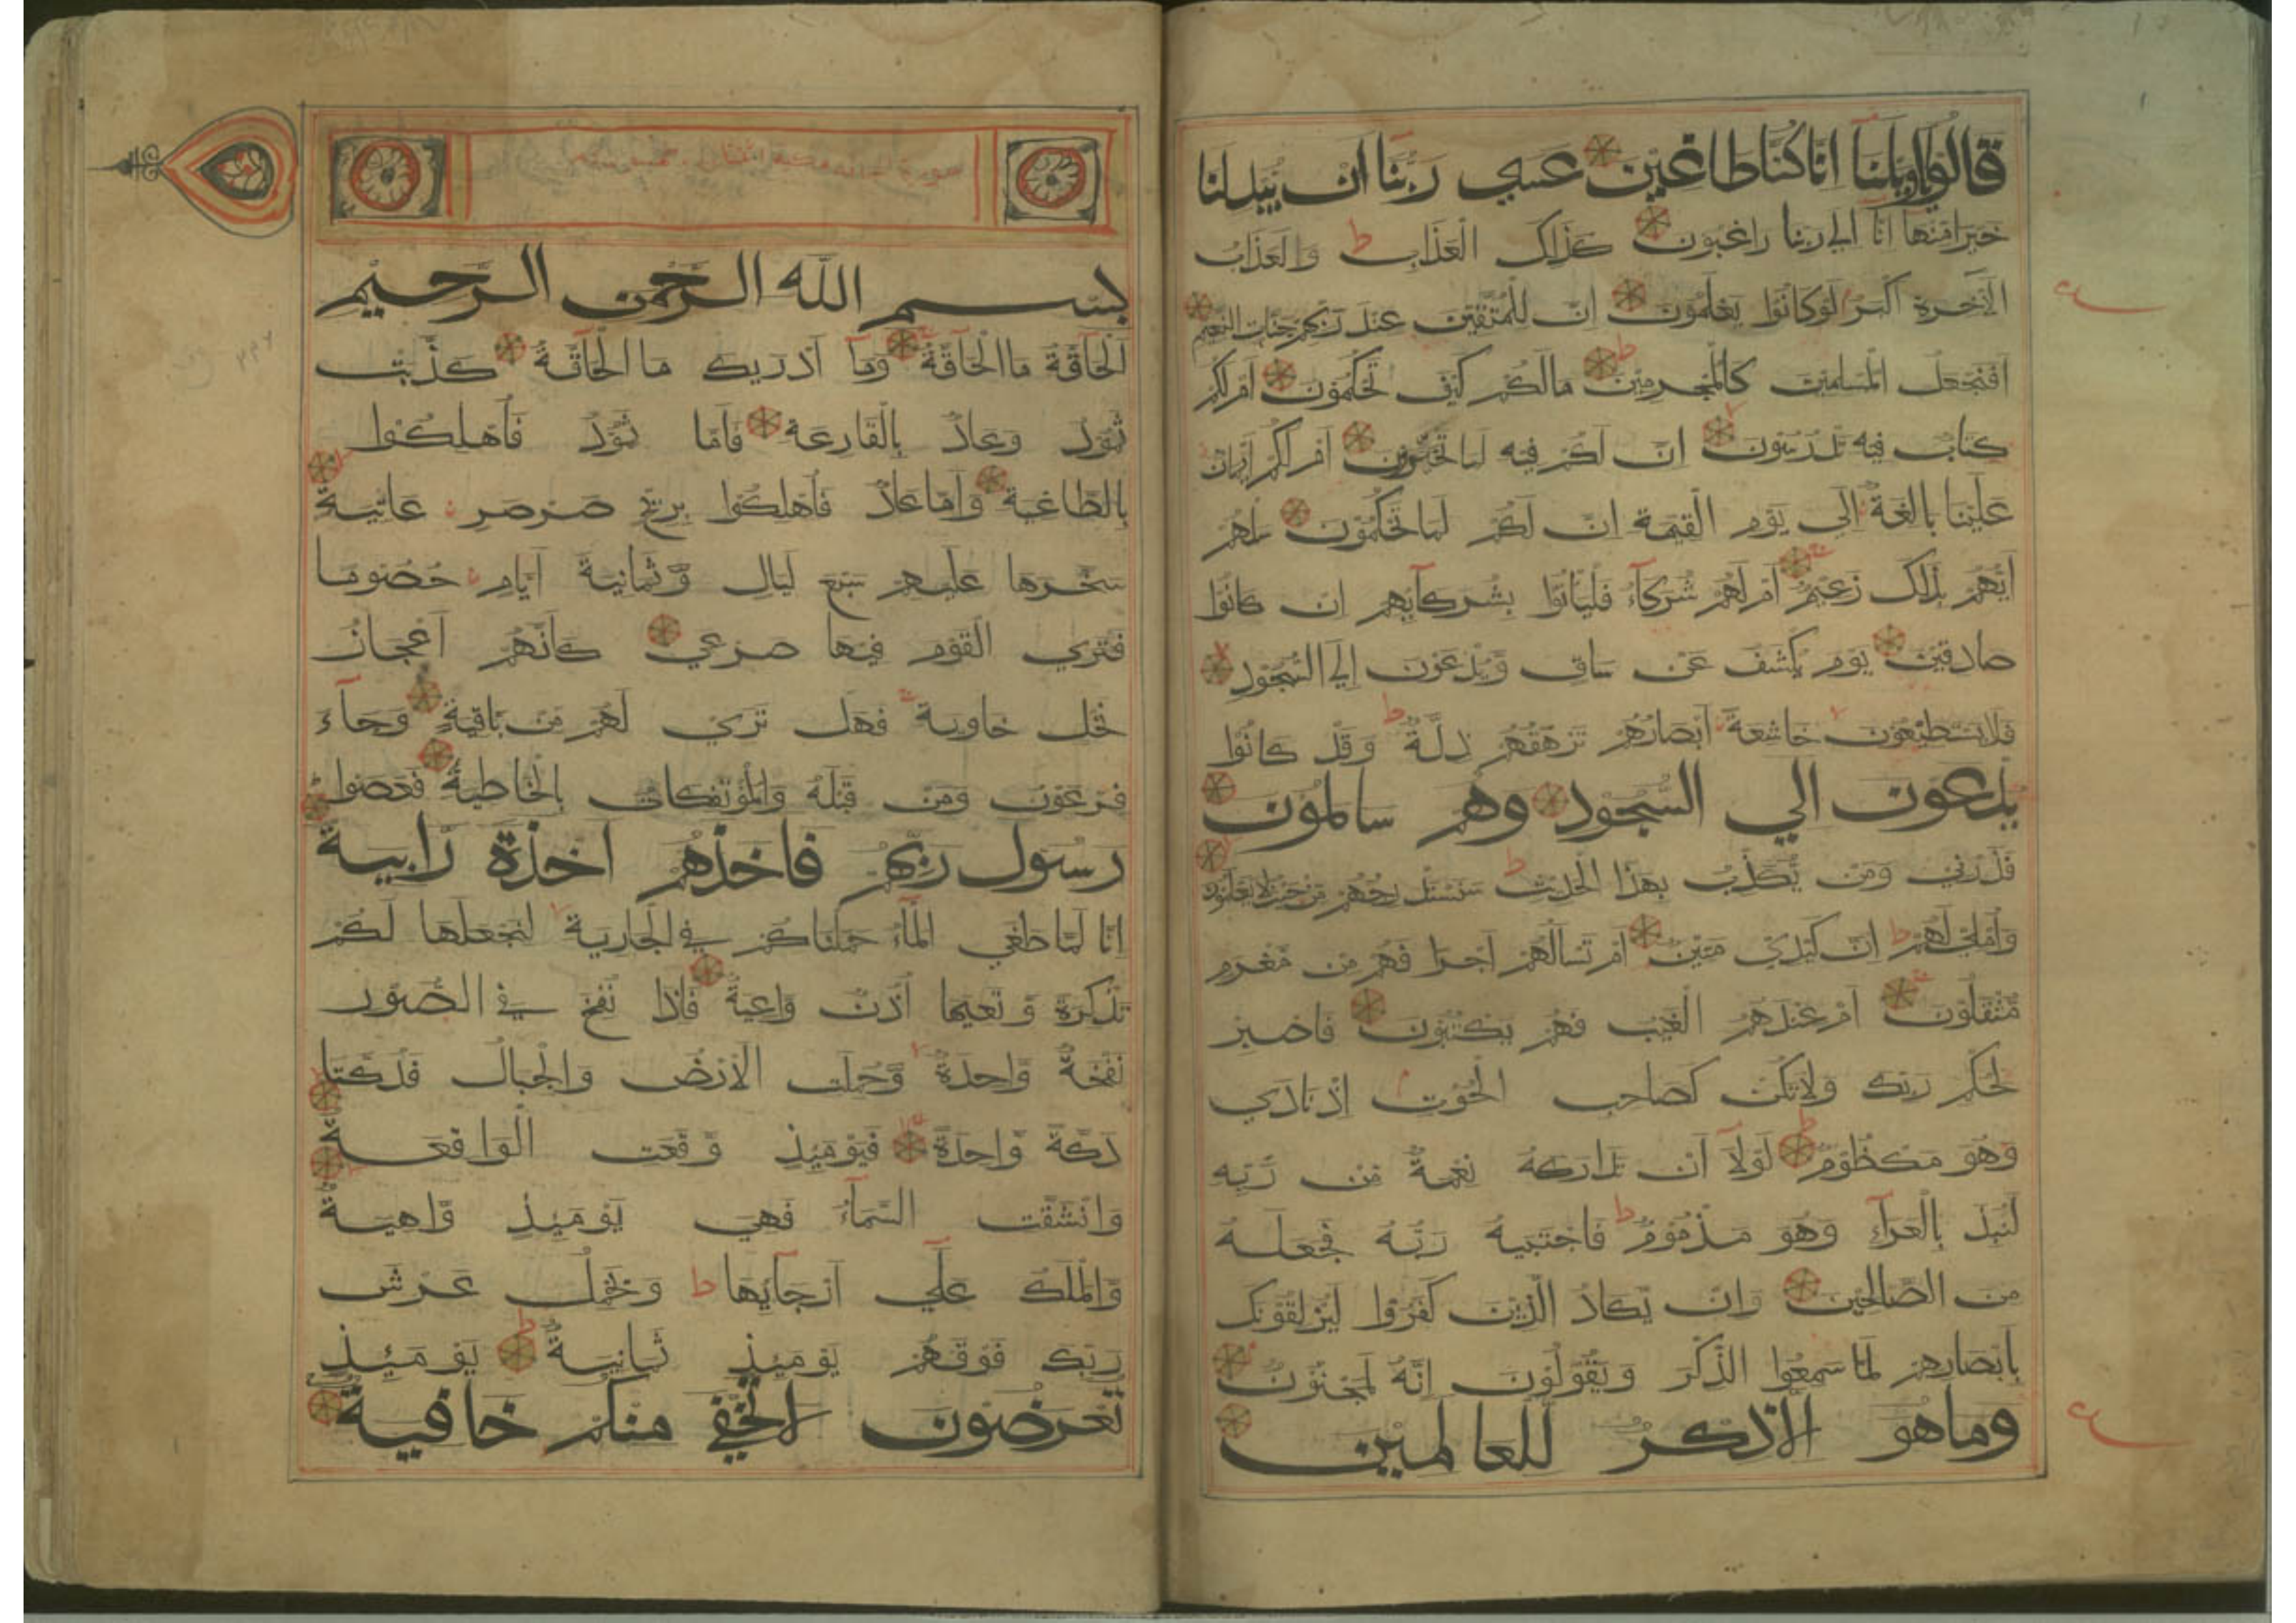 قالوا ياويلنا انا كنا طاغين عسي ربنا ان يبدلنا
خيرا منها انا الي ربنا راغبون كذلك العذاب ط والعذاب
الاخرة اكبر لو كانوا يعلمون ان للمتقين عند ربهم جنات النعيم
افنجعل المسلمين كالمجرمين ط مالكم كيف تحكمون ام لكم
كتاب فيه تدرسون ان لكم فيه لما تخيرون ام لكم ايمان
علينا بالغة الي يوم القيمة ان لكم لما تحكمون سلهم
ايهم بذلك زعيم ام لهم شركاء فلياتوا بشركايهم ان كانوا
صادقين يوم يكشف عن ساق ويدعون الي السجود
فلا يستطيعون خاشعة ابصارهم ترهقهم ذلة ط وقد كانوا
يدعون الي السجود وهم سالمون
فذرني ومن يكذب بهذا الحديث ط سنستدرجهم من حيث لا يعلمون
واملي لهم ط ان كيدي متين ام تسالهم اجرا فهم من مغرم
مثقلون ام عندهم الغيب فهم يكتبون فاصبر
لحكم ربك ولا تكن كصاحب الحوت اذ نادي
وهو مكظوم ط لولا ان تداركه نعمة من ربه
لنبذ بالعراء وهو مذموم ط فاجتبيه ربه فجعله
من الصالحين وان يكاد الذين كفروا ليزلقونك
بابصارهم لما سمعوا الذكر ويقولون انه لمجنون
وما هو الا ذكر للعالمين
بسم الله الرحمن الرحيم
الحاقة ما الحاقة وما ادريك ما الحاقة كذبت
ثمود وعاد بالقارعة فاما ثمود فاهلكوا
بالطاغية واما عاد فاهلكوا بريح صرصر عاتية
سخرها عليهم سبع ليال وثمانية ايام حصوما
فتري القوم فيها صرعي كانهم اعجاز
نخل خاوية فهل تري لهم من باقية وجاء
فرعون ومن قبله والمؤتفكات بالخاطية فعصوا
رسول ربهم فاخذهم اخذة رابية
انا لما طغي الماء حملناكم في الجارية لنجعلها لكم
تذكرة وتعيها اذن واعية فاذا نفخ في الصور
نفخة واحدة وحملت الارض والجبال فدكتا
دكة واحدة فيومئذ وقعت الواقعة
وانشقت السماء فهي يومئذ واهية
والملك علي ارجايها ط ويحمل عرش
ربك فوقهم يومئذ ثمانية ط يومئذ
تعرضون لا تخفي منكم خافية